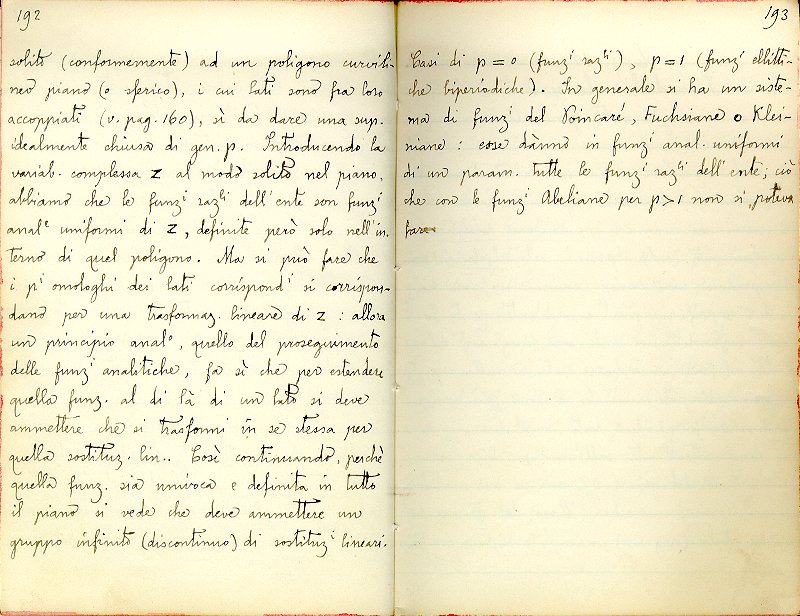 192
solito (conformemente) ad un poligono curvili-
neo piano (o sferico), i cui lati sono fra loro
accoppiati (v. pag. 160), sì da dare una sup.
idealmente chiusa di gen. p. Introducendo la
variab. complessa z al modo solito nel piano,
abbiamo che le funzⁱ razˡⁱ dell'ente son funzⁱ
analᵉ uniformi di z, definite però solo nell'in-
terno di quel poligono. Ma si può fare che
i pⁱ omologhi dei lati corrispondⁱ si corrispon-
dano per una trasformaz. lineare di z : allora
un principio analᵒ, quello del proseguimento
delle funzⁱ analitiche, fa sì che per estendere
quella funz. al di là di un lato si deve
ammettere che si trasformi in se stessa per
quella sostituz. lin.. Così continuando, perchè
quella funz. sia univoca e definita in tutto
il piano si vede che deve ammettere un
gruppo infinito (discontinuo) di sostituzⁱ lineari.
193
Casi di p=0 (funzⁱ razˡⁱ), p=1 (funzⁱ ellitti-
che biperiodiche). In generale si ha un siste-
ma di funzⁱ del Poincaré, Fuchsiane o Klei-
niane : esse dànno in funzⁱ anal. uniformi
di un param. tutte le funzⁱ razˡⁱ dell'ente; ciò
che con le funzⁱ Abeliane per p>1 non si poteva
fare.